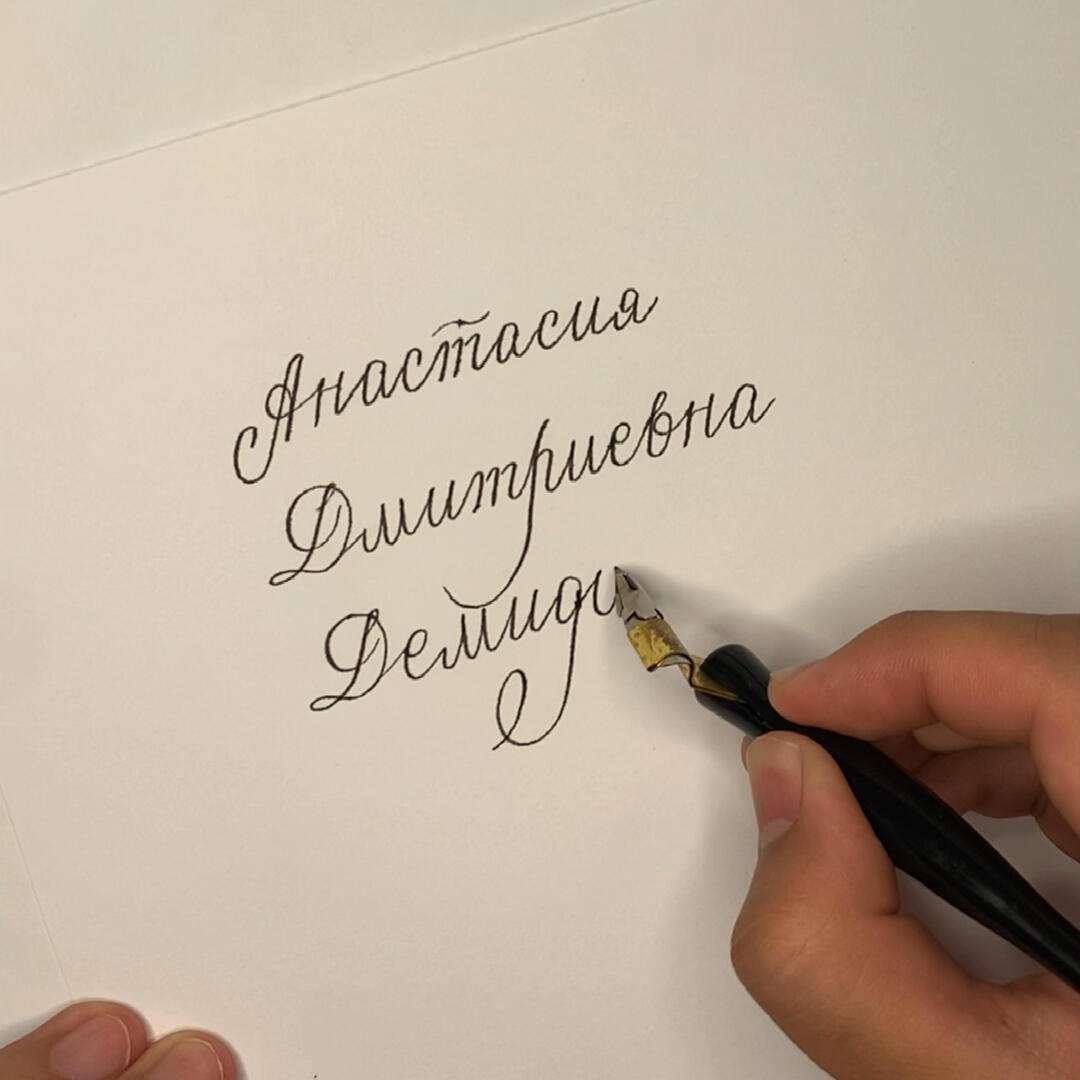 Анастасия
Дмитриевна
Демиди